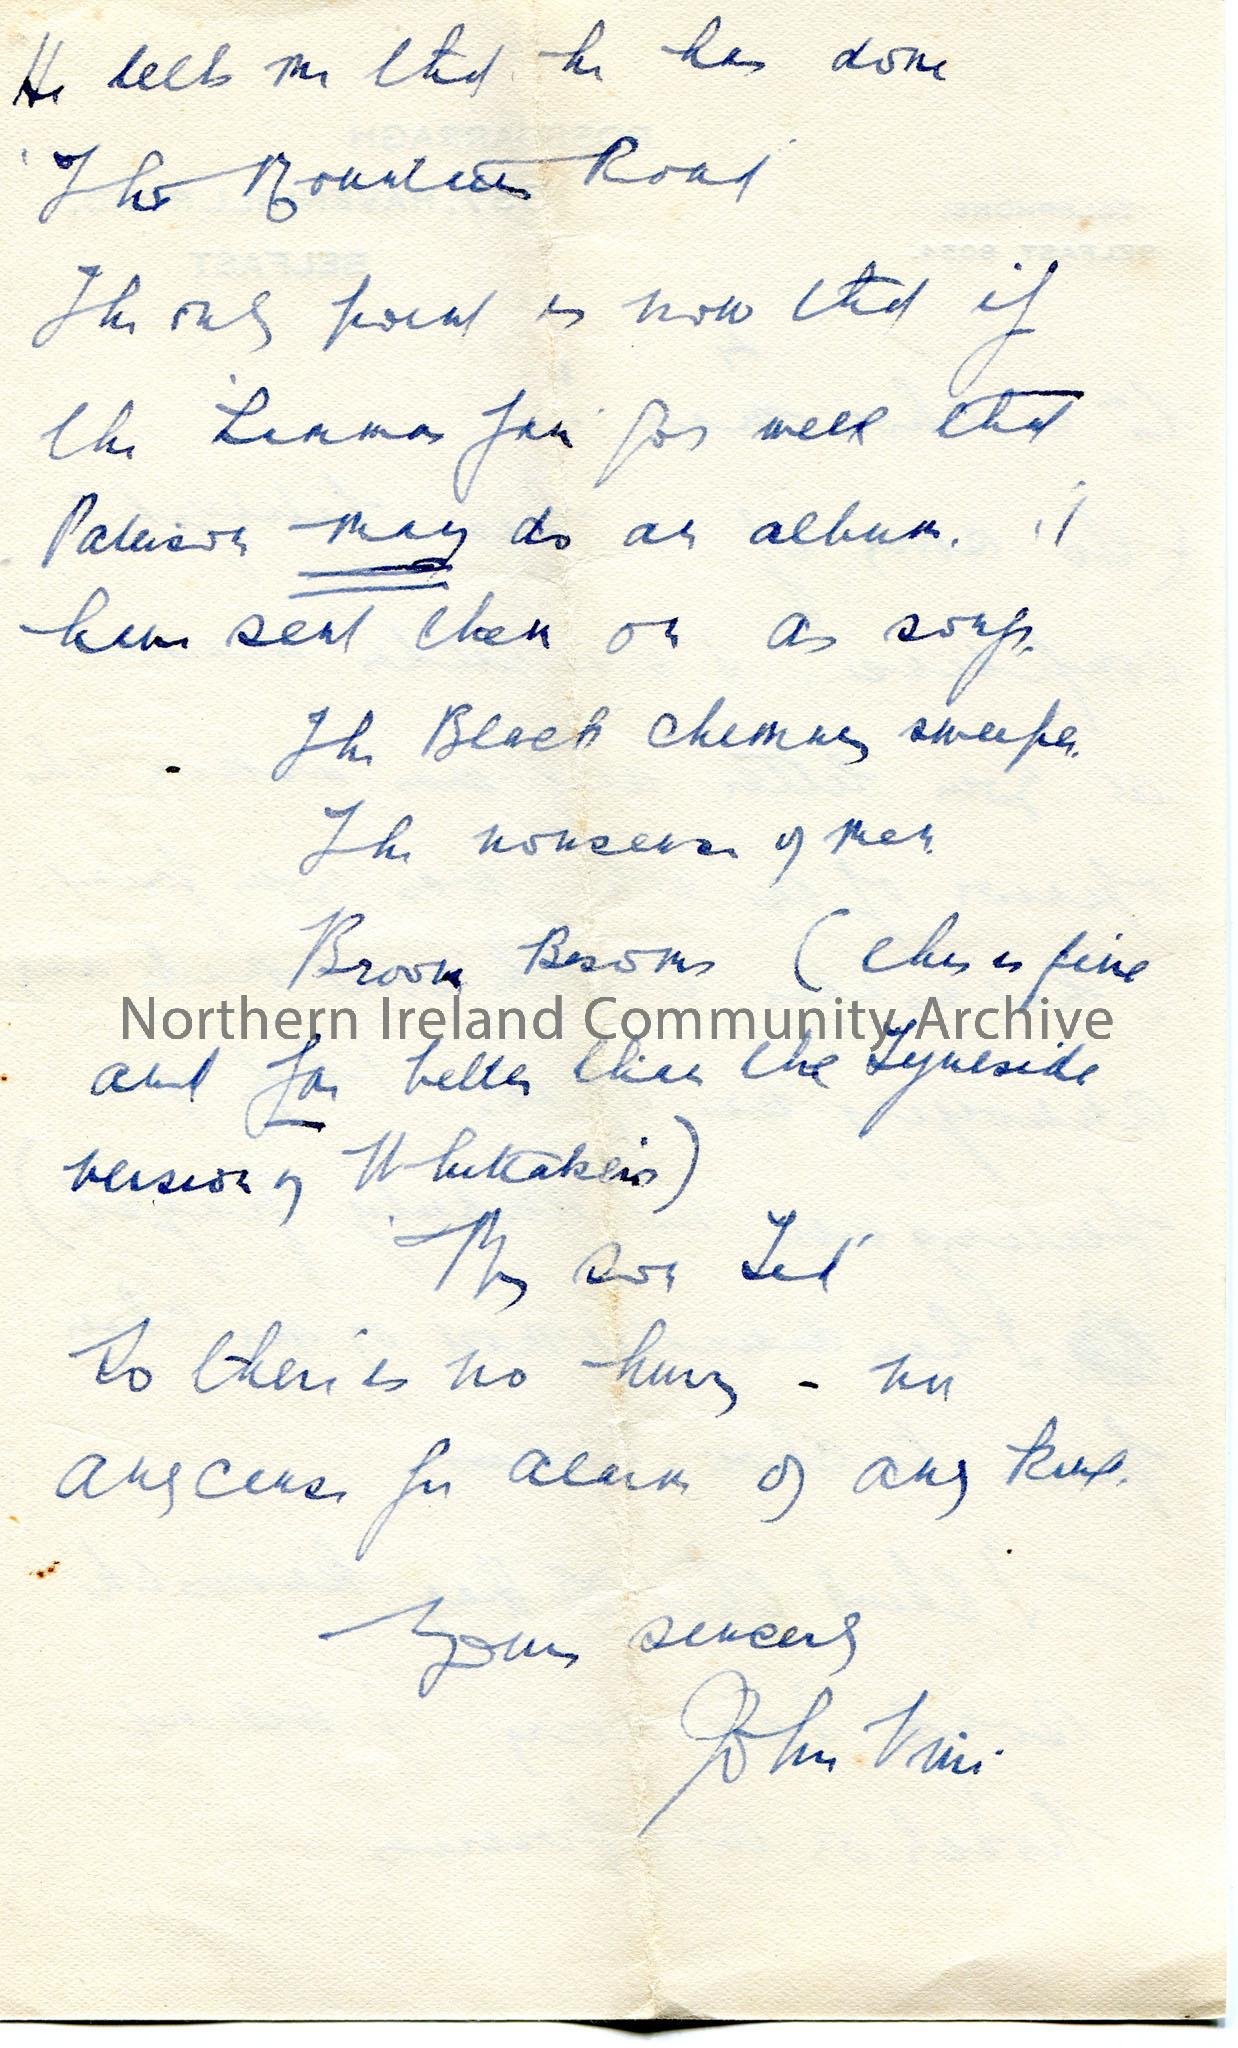 He tells me that he has done
'The Mountain Road'
The only point is now that if
the 'Lammas Fair' goes well that
Paterson may do an album. I
have sent them on as songs.
The Black Chimney sweeper.
The nonsense of men.
Broom Besoms (this is fine
Northern Ireland Community Archive
and far better than the Tyneside
version of Whittakers)
'My son Ted'
So there is no hurry - nor
any cause for alarm of any kind.
Yours sincerely
John Vine